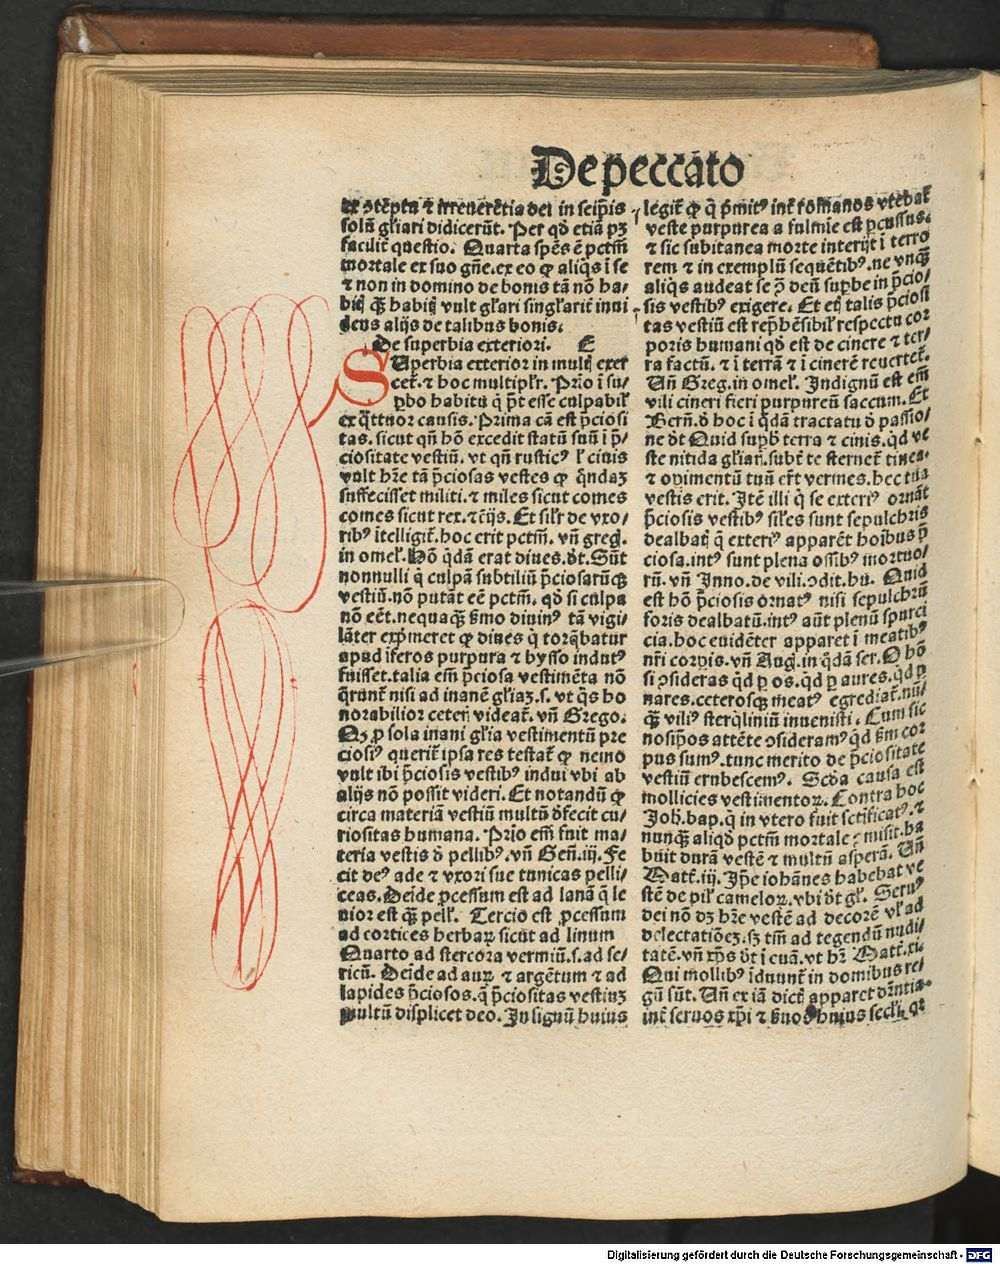 De peccãto
ex ↄtẽptu ⁊ irreuerẽtia dei in seip̃is
solũ gl̃iari didicerũt. Per qđ etiã pꝫ
facilit̃ questio. Quarta sp̃es ẽ pctm̃
mortale ex suo gñe. ex eo ꝙ aliq̃s ĩ se
⁊ non in domino de bonis tã nõ ha⸗
bitꝭ ꝗ̃ꝫ habitꝭ vult gl̃ari singl̃arit̃ inui
dens alijs de talibus bonis.
De superbia exteriori. E
SUperbia exterior in multꝭ exer
cet̃. ⁊ hoc multipl̃r. Prĩo ĩ su⸗
ꝑbo habitu q̇ p̃t esse culpabil̃
ex q̃ttuor causis. Prima cã est p̃ciosi
tas. sicut qñ hõ excedit statũ suũ ĩ p̃⸗
ciositate vestiũ. vt qñ rusticꝰ l̃ ciuis
vult hr̃e tã p̃ciosas vestes ꝙ q̃ndaꝫ
suffecisset militi. ⁊ miles sicut comes
comes sicut rex. ⁊ c̃ijs. Et sil̃r de vxo⸗
ribꝰ ĩtelligit̃. hoc erit pctm̃. vñ greg.
in omel̃. Hõ q̃dã erat diues. d̃t. Sũt
nonnulli q̇ culpã subtiliũ p̃ciosarũqꝫ
vestiũ. nõ putãt eẽ pctm̃. qđ si culpa
nõ eẽt. nequaqꝫ s̃mo diuinꝰ tã vigi⸗
lãter exp̃meret ꝙ diues q̇ torq̃batur
apud ĩferos purpura ⁊ bysso indutꝰ
fuisset. talia em̃ p̃ciosa vestimẽta nõ
q̃runt̃ nisi ad inanẽ gl̃iaꝫ. s. vt q̃s ho
norabilior ceterꝭ videat̃. vñ Grego.
Qꝫ ꝓ sola inani gl̃ia vestimentũ pre
ciosiꝰ querit̃ ipsa res testat̃ ꝙ nemo
vult ibi p̃ciosis vestibꝰ indui vbi ab
alijs nõ possit videri. Et notandũ ꝙ
circa materiã vestiũ multũ đfecit cu⸗
riositas humana. Prĩo em̃ fuit ma⸗
teria vestis đ pellibꝰ. vñ Geñ. iij. Fe
cit deꝰ ade ⁊ vxori sue tunicas pelli⸗
ceas. Deĩde ꝓcessum est ad lanã q̃ le
uior est ꝗ̃ꝫ pell̃. Tercio est ꝓcessum
ad cortices herbaꝝ sicut ad linum
Quarto ad stercora vermiũ. s. ad se⸗
ricũ. Deĩde ad auꝝ ⁊ argẽtum ⁊ ad
lapides p̃ciosos. q̃ p̃ciositas vestiuꝫ
multũ displicet deo. In signũ huius
legit̃ ꝙ q̇ p̃mitꝰ int̃ romanos vtebat̃
veste purpurea a fulmĩe est ꝑcussus.
⁊ sic subitanea morte interijt ĩ terro
rem ⁊ in exemplũ sequẽtibꝰ. ne vnꝗ̃ꝫ
aliq̃s audeat se ꝓ deũ suꝑbe in p̃cio⸗
sis vestibꝰ exigere. Et etꝭ talis p̃ciosi
tas vestiũ est rep̃hẽsibil̃ respectu cor
poris humani qđ est de cinere ⁊ ter⸗
ra factũ. ⁊ ĩ terrã ⁊ ĩ cinerẽ reuertet̃.
Uñ Greg. in omel̃. Indignũ est em̃
vili cineri fieri purpureũ saccum. Et
Berñ. đ hoc ĩ q̃dã tractatu đ passio⸗
ne d̃t Quid suꝑb̃ terra ⁊ cinis. qđ ve
ste nitida gl̃iarꝭ. subt̃ te sternet̃ tinea.
⁊ opimentũ tuũ ert̃ vermes. hec tua
vestis erit. Itẽ illi q̇ se exteriꝰ ornãt
p̃ciosis vestibꝰ sil̃es sunt sepulchris
dealbatꝭ q̃ exteriꝰ apparẽt hoĩbus p̃
ciosa. intꝰ sunt plena ossibꝰ mortuo⸗
rũ. vñ Inno. de vili. ↄdit. hu. Quid
est hõ p̃ciosis ornatꝰ nisi sepulchrũ
foris dealbatũ. intꝰ aũt plenũ spurci
cia. hoc euidẽter apparet ĩ meatibꝰ
nr̃i corꝑis. vñ Aug̃. in q̃dã ser. O hõ
si ↄsideras qđ ꝑ os. qđ ꝑ aures. qđ ꝑ
nares. ceterosqꝫ meatꝰ egrediat̃. nũ⸗
ꝗ̃ꝫ viliꝰ sterq̇liniũ inuenisti. Cum sic
nosip̃os attẽte ↄsideramꝰ qđ s̃m cor
pus sumꝰ. tunc merito de p̃ciositate
vestiũ erubescemꝰ. Scđa causa est
mollicies vestimentoꝝ. Contra hoc
Joh̃. bap. q̇ in vtero fuit sc̃tificatꝰ. ⁊
nunꝗ̃ꝫ aliqđ pctm̃ mortale ↄmisit. ha
buit durã vestẽ ⁊ multũ asperã. Uñ
Matt̃. iij. Ip̃e iohãnes habebat ve
stẽ de pil̃ cameloꝝ. vbi d̃t gl̃. Seruꝰ
dei nõ dꝫ hr̃e vestẽ ad decorẽ vl̃ ad
delectatiõeꝫ. sꝫ tm̃ ad tegendũ nudi⸗
tatẽ. vñ xp̃s d̃t ĩ euã. vt hr̃ Matt̃. xi.
Qui mollibꝰ ĩduunt̃ in domibus re⸗
gũ sũt. Uñ ex iã dictꝭ apparet dr̃ntia
int̃ seruos xp̃i ⁊ s̃uos huius secl̃i. qꝛ
Digitalisierung gefördert durch die Deutsche Forschungsgemeinschaft - DFG